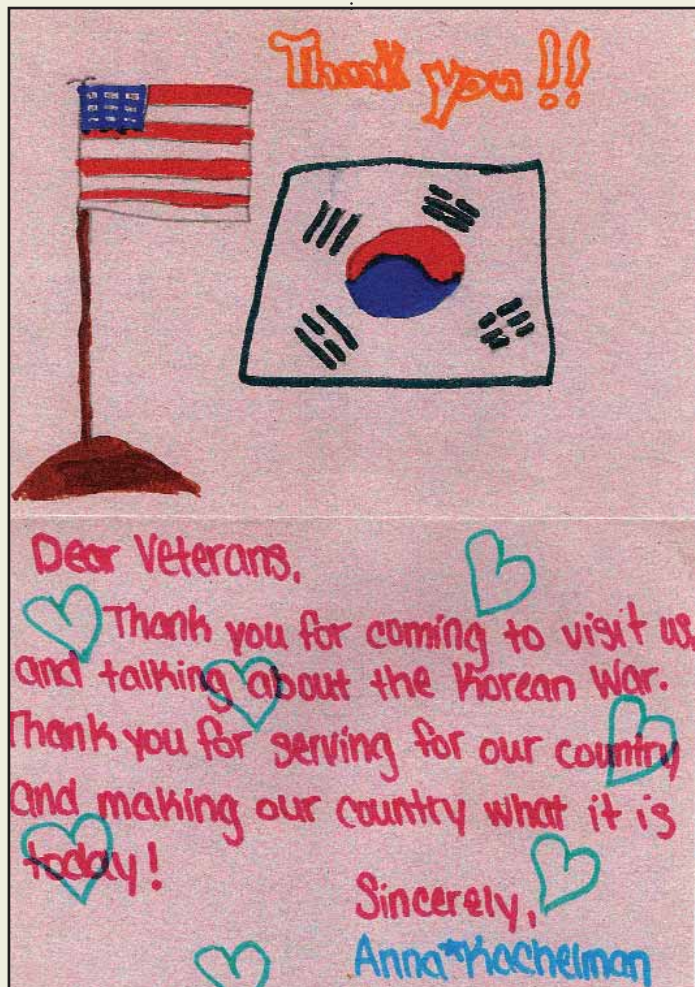 Thank you!!
Dear Veterans,
Thank you for coming to visit us
and talking about the Korean War.
Thank you for serving for our country
and making our country what it is
today!
Sincerely,
Anna*Kachelman